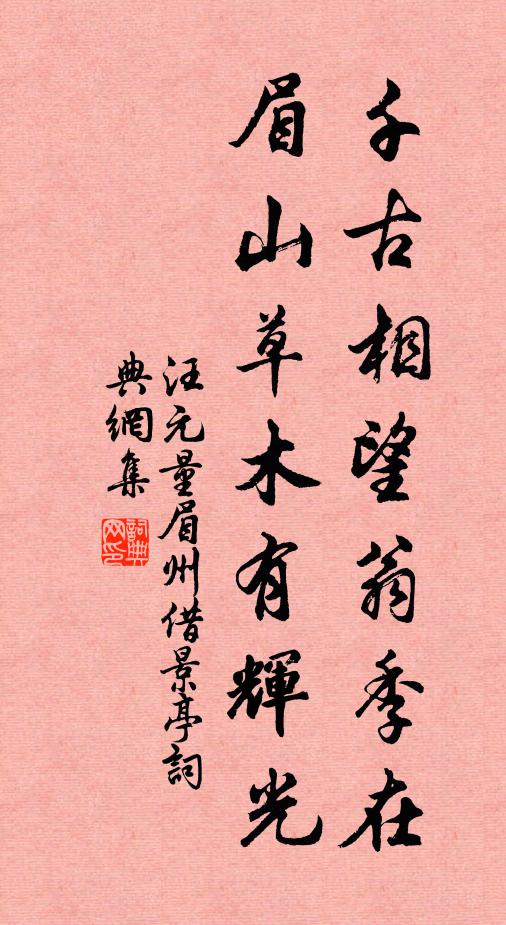 千古相望翁季在
眉山草木有輝光
汪元量眉州借景亭詞
典網集
詞典網印